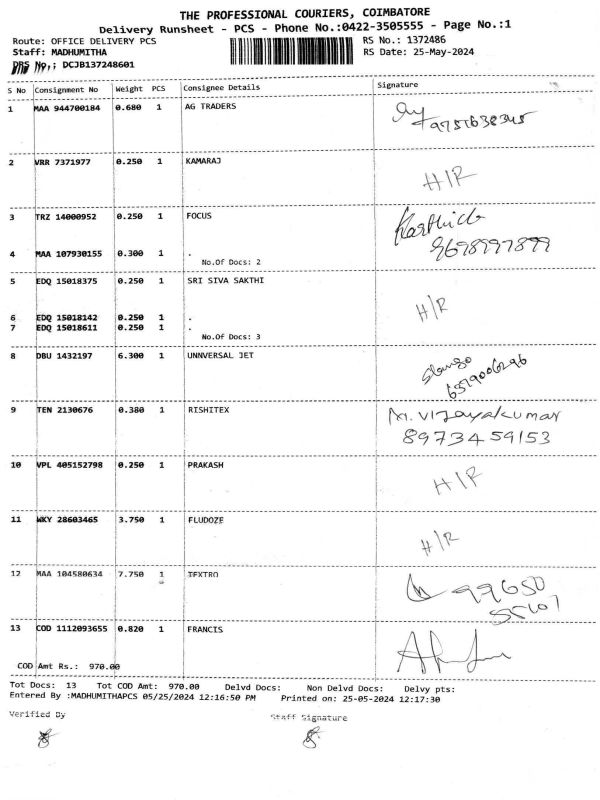 THE PROFESSIONAL COURIERS, COIMBATORE
Delivery Runsheet - PCS - Phone No.:0422-3505555 - Page No.:1
Route: OFFICE DELIVERY PCS RS No.: 1372486
Staff: MADHUMITHA RS Date: 25-May-2024
DRS No.: DCJB137248601
S No Consignment No Weight PCS Consignee Details Signature
1 MAA 944700184 0.680 1 AG TRADERS
2 VRR 7371977 0.250 1 KAMARAJ H/R
3 TRZ 14000952 0.250 1 FOCUS Karthick
9698997899
4 MAA 107930155 0.300 1 .
No.Of Docs: 2
5 EDQ 15018375 0.250 1 SRI SIVA SAKTHI
H/R
6 EDQ 15018142 0.250 1 .
7 EDQ 15018611 0.250 1 .
No.Of Docs: 3
8 DBU 1432197 6.300 1 UNNVERSAL JET
6379006296
9 TEN 2130676 0.380 1 RISHITEX M. Vijayakumar
8973459153
10 VPL 405152798 0.250 1 PRAKASH H/R
11 WKY 28603465 3.750 1 FLUDOZE H/R
12 MAA 104580634 7.750 1 TEXTRO 99650
13 COD 1112093655 0.820 1 FRANCIS
COD Amt Rs.: 970.00
Tot Docs: 13 Tot COD Amt: 970.00 Delvd Docs: Non Delvd Docs: Delvy pts:
Entered By :MADHUMITHAPCS 05/25/2024 12:16:50 PM Printed on: 25-05-2024 12:17:30
Verified By Staff Signature